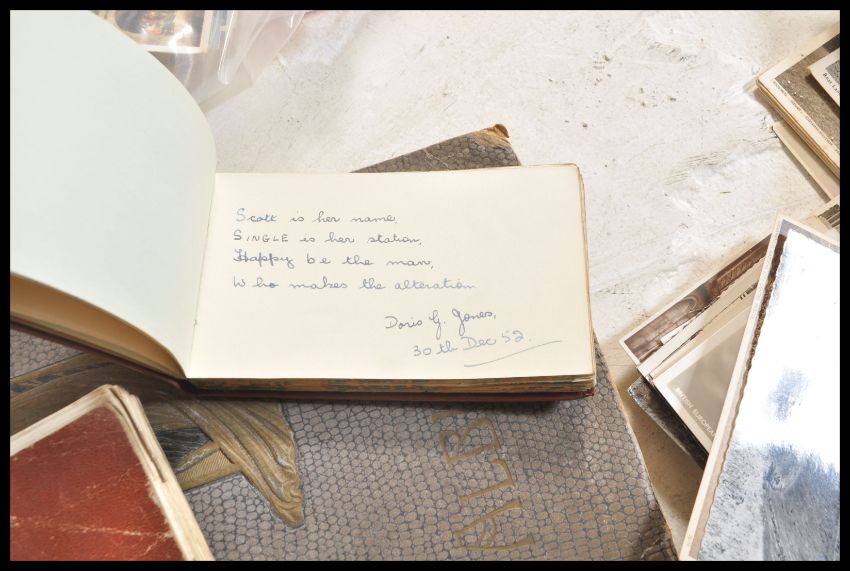 Scott is her name,
SINGLE is her station,
Happy be the man,
Who makes the alteration
Doris G. Jones,
30th Dec 52.
ALB
BRITISH EUROPEA